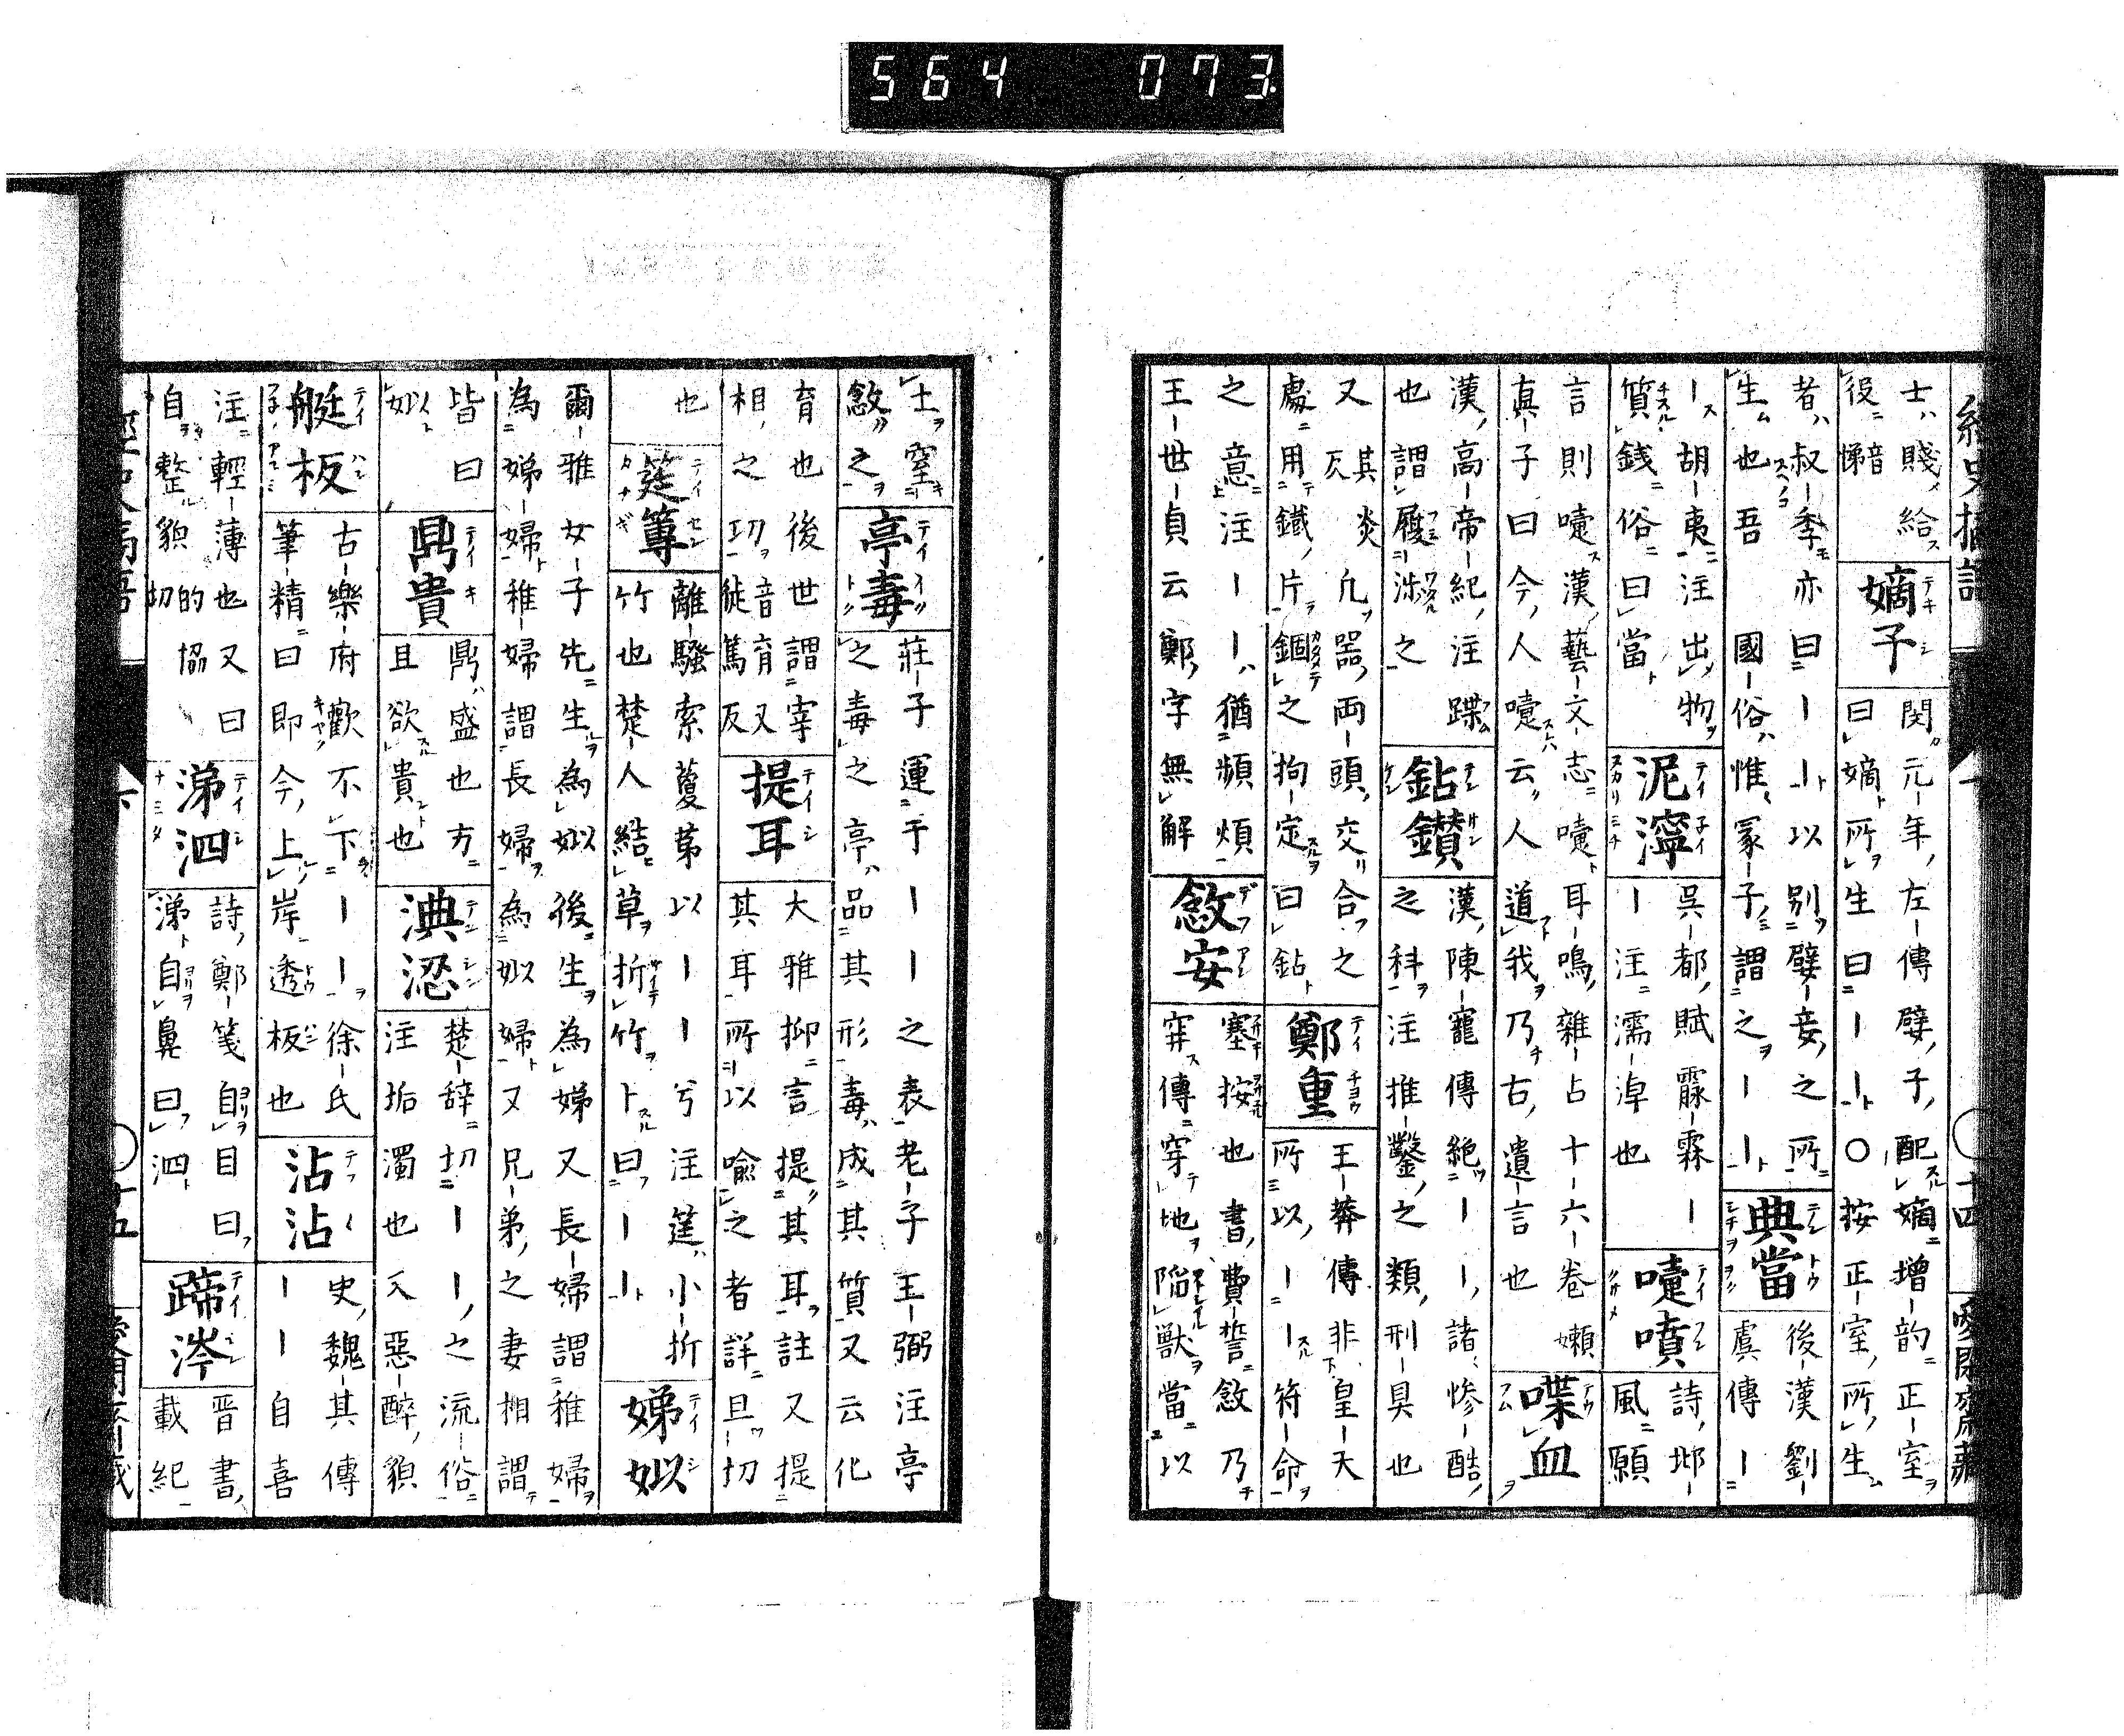 564 073
士賤給
役音悌
嫡子
閔元年左傳孽子配嫡增韵正室
曰嫡所生曰丨丨○按正室所生
者叔季亦曰丨丨以別孽妾之所
生也吾國俗惟冢子謂之丨丨
典當
後漢劉
虞傳丨
丨胡夷注出物
質錢俗曰當
泥濘
呉都賦霡霖丨
丨注濡淖也
嚏噴
詩邶
風願
言則嚏漢藝文志嚏耳鳴雜占十六卷嬾
真子曰今人嚏云人道我乃古遺言也
喋血
漢高帝紀注蹀
也謂履涉之
鉆鑚
漢陳寵傳絶丨丨諸慘酷
之科注推鑿之類刑具也
又其炎几器両頭交合之
處用鐵片錮之拘定曰鉆
鄭重
王莽傳非皇天
所以丨丨符命
之意注丨丨猶頻煩
王世貞云鄭字無解
敜安
塞按也書費誓敜乃
穽傳穿地陷獸當以
經史摘語
十四
愛閑齋藏
土窒
敜之
亭毒
莊子運于丨丨之表老子王弼注亭
之毒之亭品其形毒成其質又云化
育也後世謂宰
相之功徙音篤育反又
提耳
大雅抑言提其耳註又提
其耳所以喩之者詳且切
也
筳篿
離騷索藑茅以丨丨兮注筳小折
竹也楚人結草折竹卜曰丨丨
娣姒
爾雅女子先生為姒後生為娣又長婦謂稚婦
為娣婦稚婦謂長婦為姒婦又兄弟之妻相謂
皆曰
姒
鼎貴
鼎盛也方
且欲貴也
淟涊
楚辞切丨丨之流俗
注垢濁也又惡醉貌
艇板
古樂府歡不下丨丨徐氏
筆精曰即今上岸透板也
沾沾
史魏其傳
丨丨自喜
注輕薄也又曰
自整貌的協切
涕泗
詩鄭箋自目曰
涕自鼻曰泗
蹄涔
晋書
載紀
十五